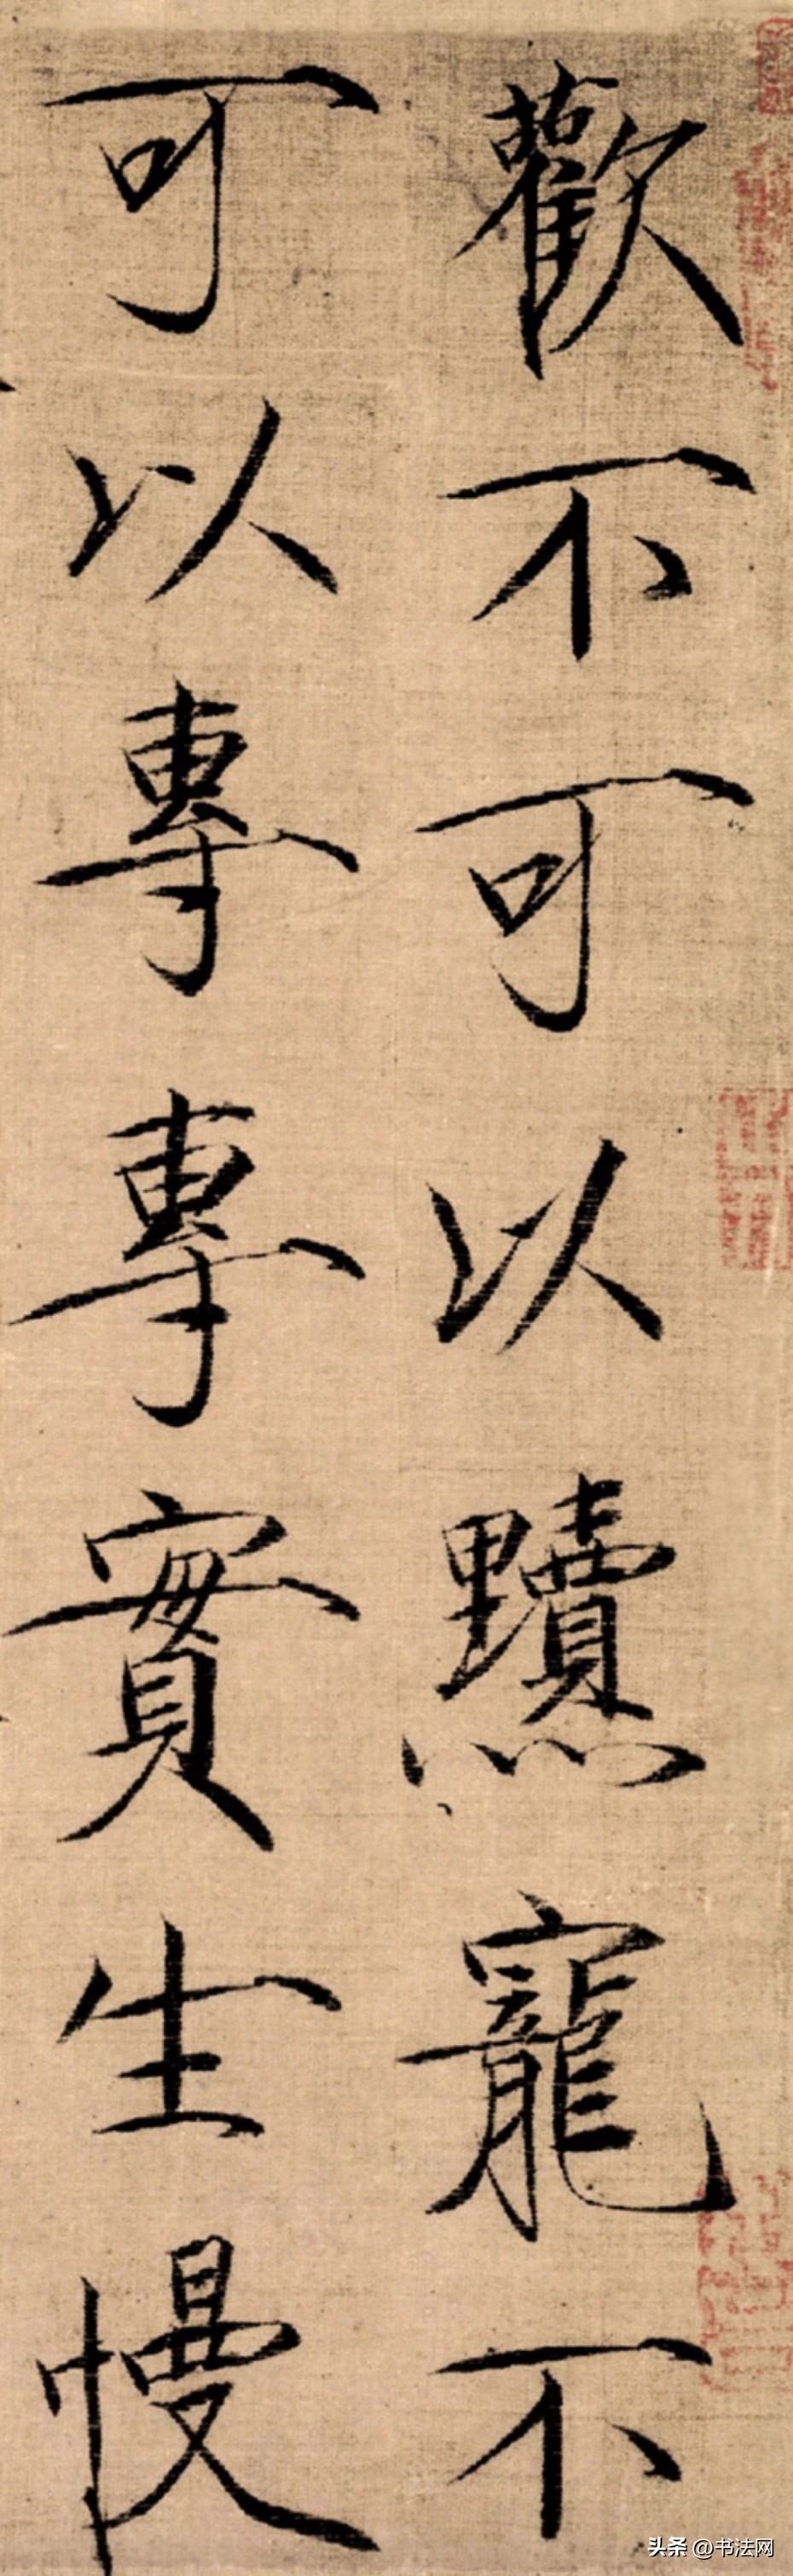 歡不可以黷寵不
可以專專實生慢
头条 @书法网